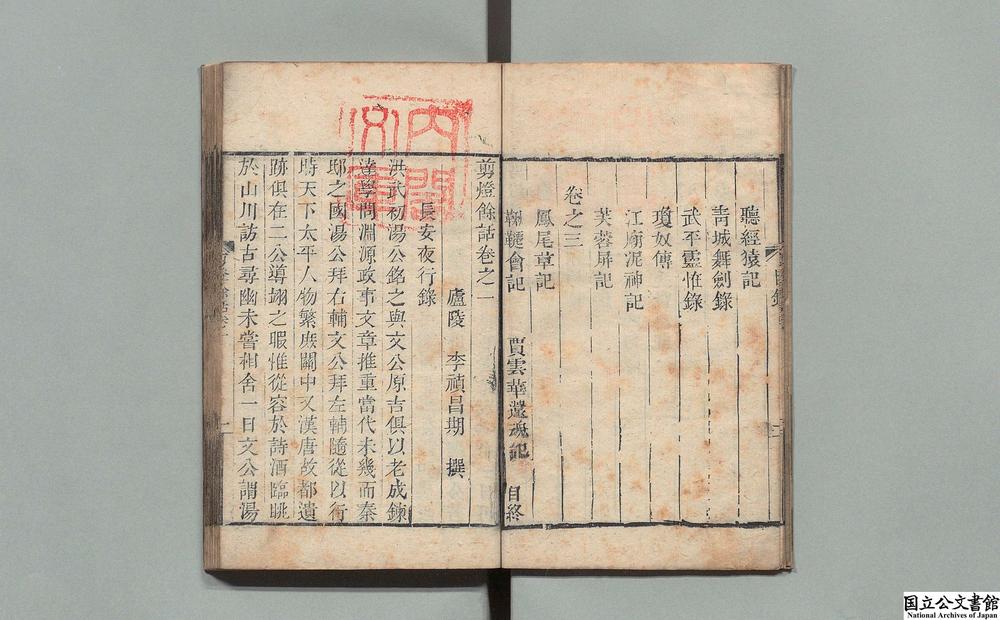 聽經猿記
青城舞劍錄
武平靈恠錄
瓊奴傳
江廟泥神記
卷之三
芙蓉屏記
鳳尾草記
鞦韆會記 賈雲華還魂記 目終
剪燈餘話卷之一
廬陵 李禎昌期 撰
長安夜行錄
洪武初湯公銘之與文公原吉俱以老成鍊
達學問淵源政事文章推重當代未幾而秦
邸之國湯公拜右輔文公拜左輔隨從以行
時天下太平人物繁庶關中又漢唐故都遺
跡俱在二公導翊之暇惟從容於詩酒臨眺
於山川訪古尋幽未嘗相舍一日文公謂湯
內閣文庫
国立公文書館
National Archives of Japan